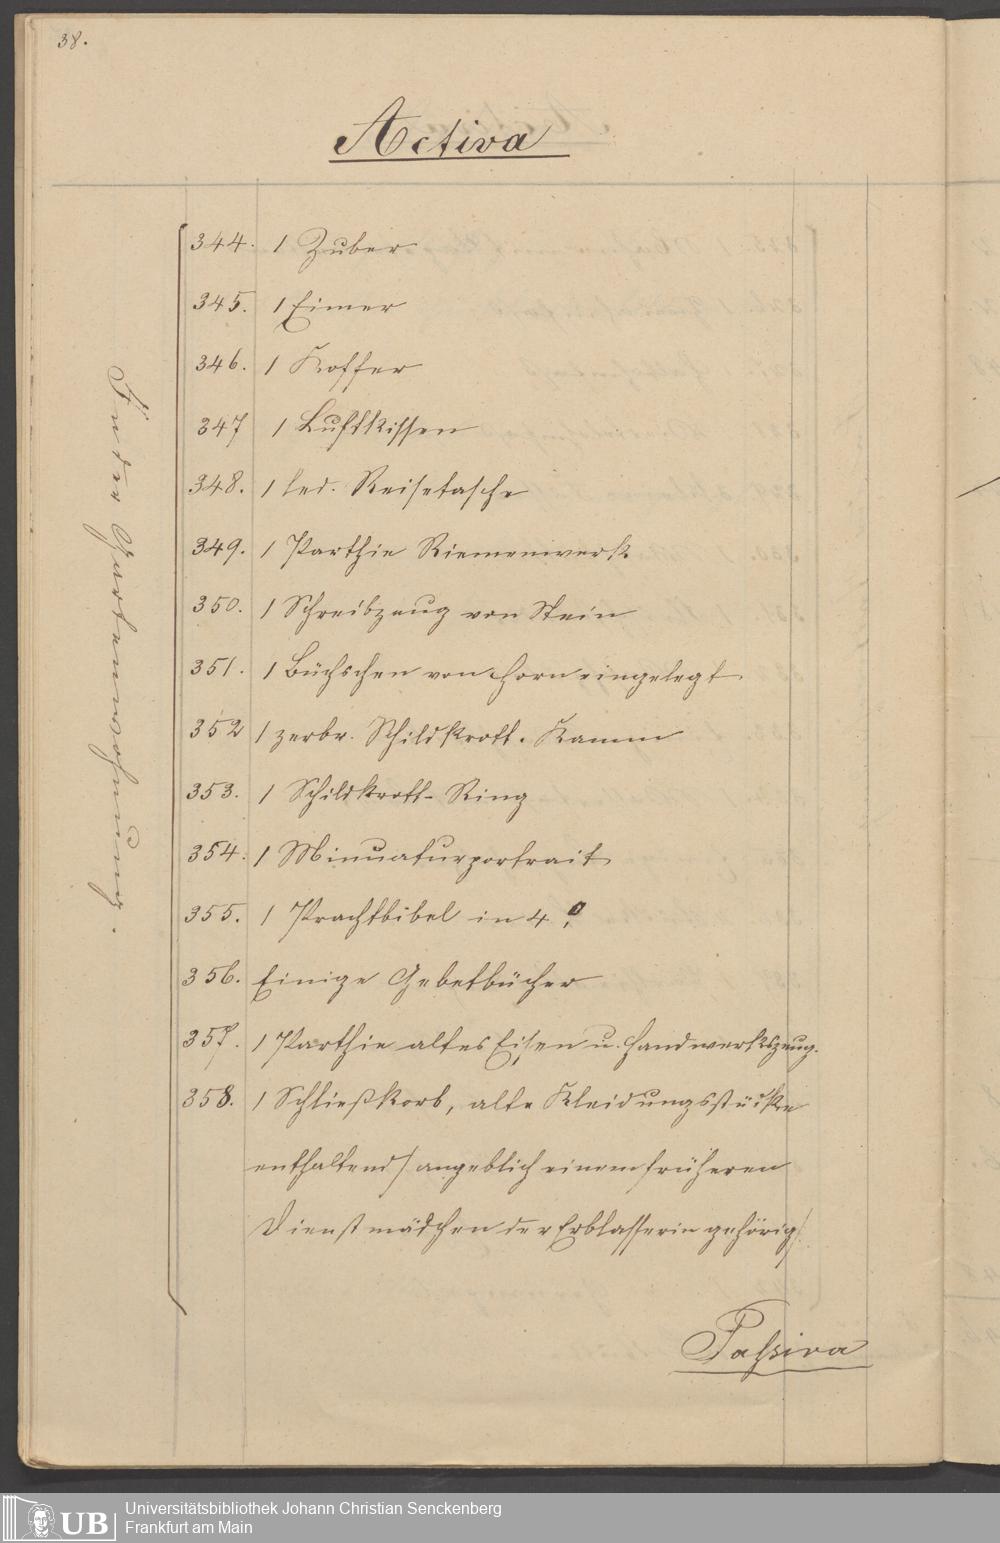 38.
Activa
In der Gartenwohnung.
344. 1 Zuber
345. 1 Eimer
346. 1 Koffer
347 1 Luftkissen
348. 1 led. Reisetasche
349. 1 Parthie Riemenwerk
350. 1 Schreibzeug von Stein
351. 1 Büchschen von Horn eingelegt
352 1 zerbr. Schildkrott. Kamm
353. 1 Schildkrott-Ring
354. 1 Minuaturportrait
355. 1 Prachtbibel in 4º.
356. Einige Gebetbücher
357. 1 Parthie altes Eisen u. Handwerkszeug.
358. 1 Schließkorb, alte Kleidungsstücke
enthaltend / angeblich einem früheren
Dienstmädchen der Erblasserin gehörig /.
Passiva
UB
Universitätsbibliothek Johann Christian Senckenberg
Frankfurt am Main